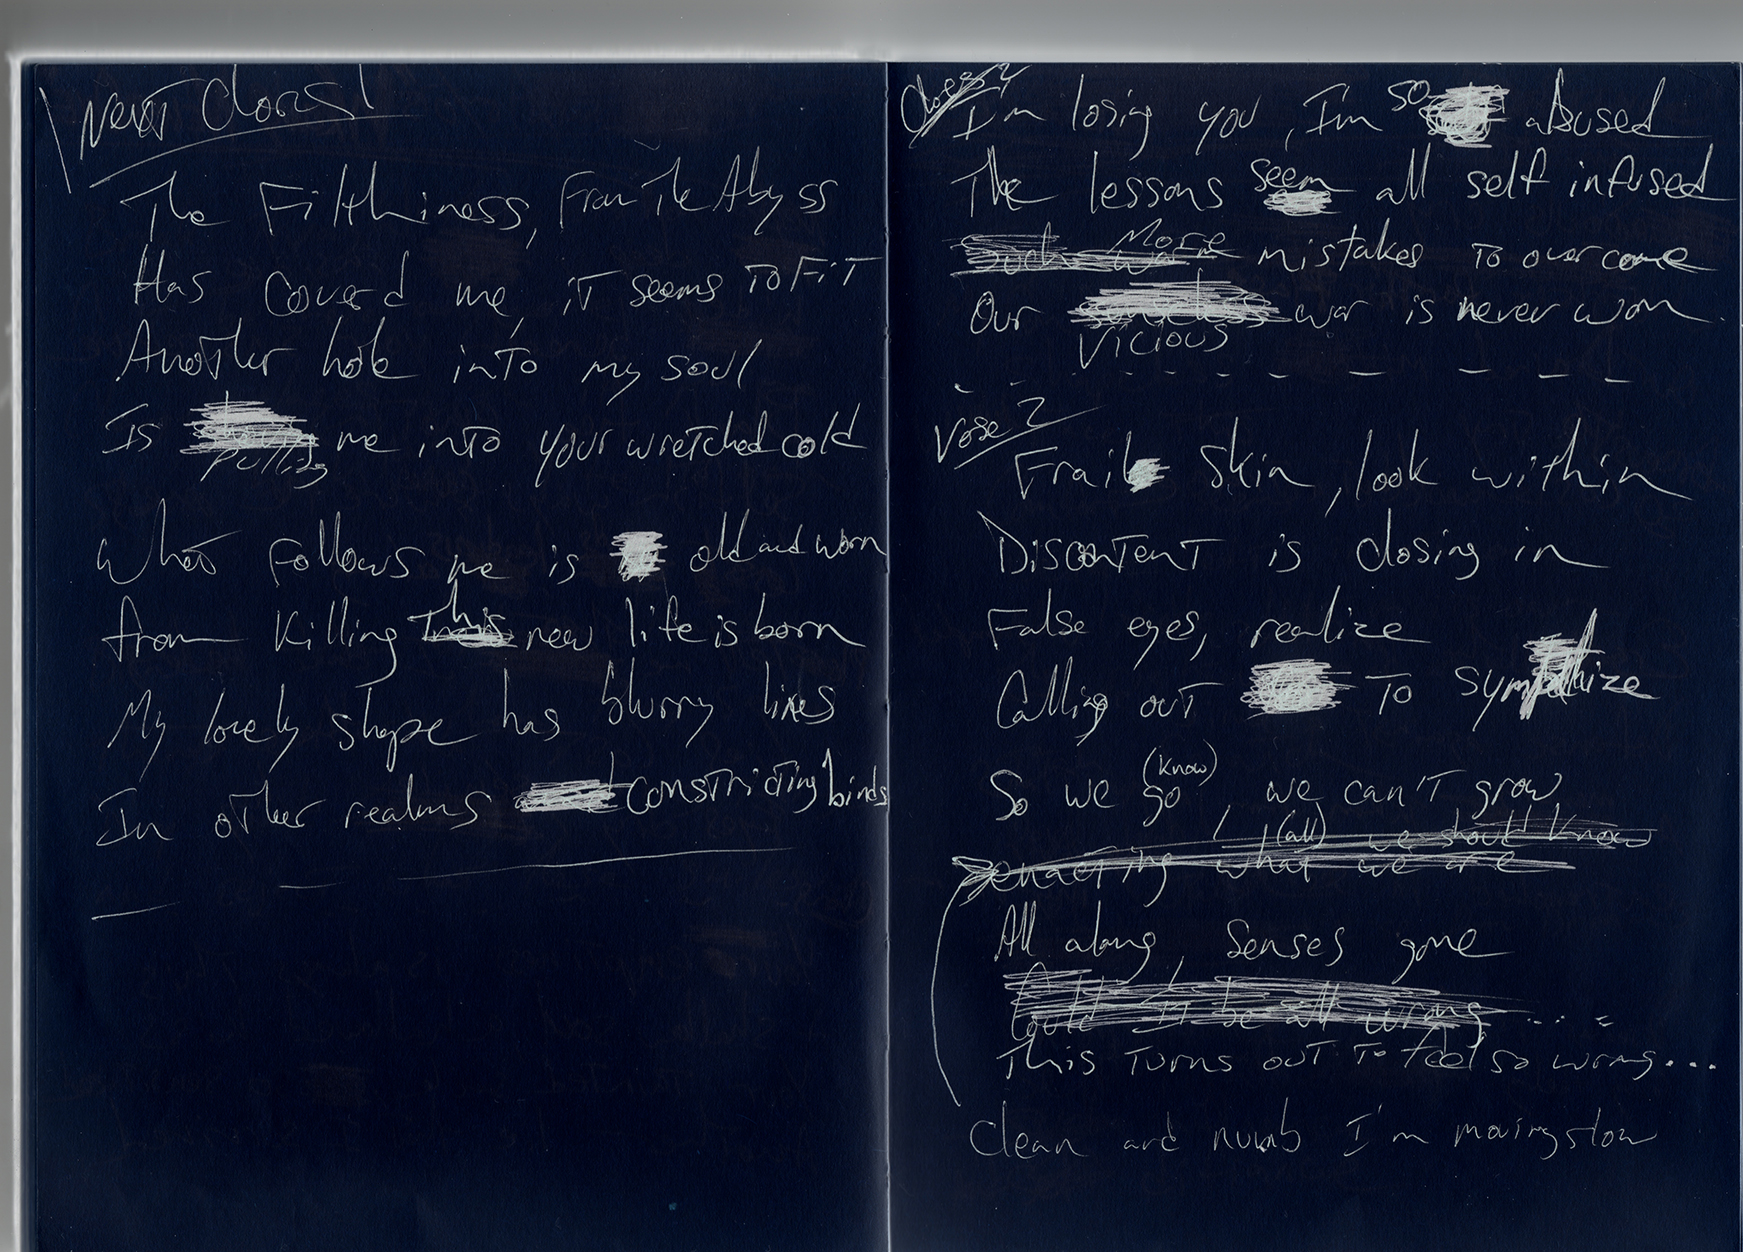 The Filthiness, From The Abyss
Has Coverd me, iT seems To FiT
Another hole inTo my soul
Is pulling me inTo your wretched cold
What Follows me is old and worn
from Killing This new life is born
My lovely shape has blurry lines
In other realms constricting binds
I'm losing you, I'm so abused
The lessons seem all self infused
More mistakes To overcome
Our vicious war is never won
Verse 2
Frail Skin, look within
DisconTenT is closing in
False eyes, realize
Calling ouT To sympathize
So we go (know), we can'T grow
(all) we should know
enacting what we are
All along, Senses gone
Could IT be all wrong ...
This Turns ouT To feel so wrong...
Clean and numb I'm moving slow